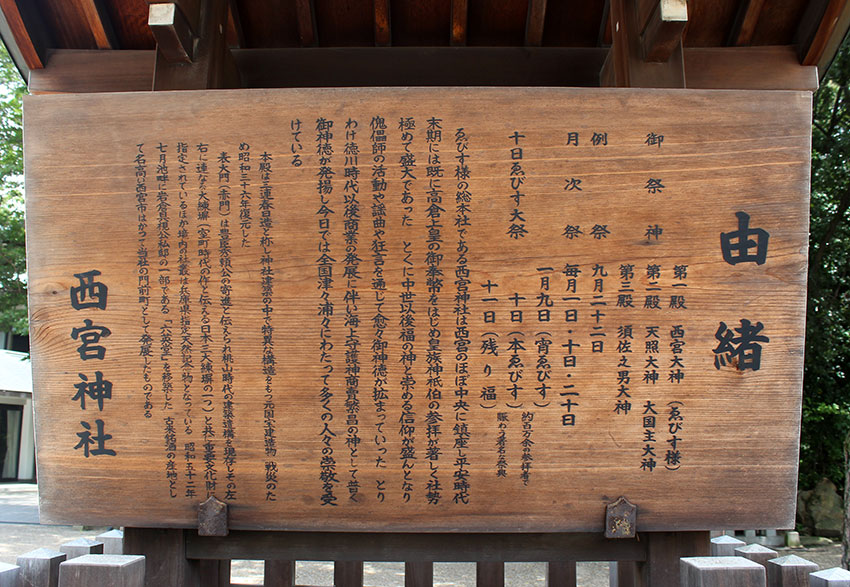 由緒
御祭神
第一殿 西宮大神(ゑびす様)
第二殿 天照大神 大国主大神
第三殿 須佐之男大神
例祭 九月二十二日
月次祭 毎月一日・十日・二十日
十日ゑびす大祭
一月九日(宵ゑびす)
十日(本ゑびす)
十一日(残り福)
約百万余の参拝者で
賑わう著名な祭典
ゑびす様の総本社である西宮神社は西宮のほぼ中央に鎮座し平安時代
末期には既に高倉上皇の御奉幣をはじめ皇族神祇伯の参拝が著しく社勢
極めて盛大であった とくに中世以後福の神と崇める信仰が盛んとなり
傀儡師の活動や謡曲や狂言を通じて愈々御神徳が拡まっていった とり
わけ徳川時代以後商業の発展に伴い海上守護神商買繁昌の神として普く
御神徳が発揚し今日では全国津々浦々にわたって多くの人々の崇敬を受
けている
本殿は三連春日造と称し神社建築の中で特異な構造をもつ元国宝建造物 戦災のた
め昭和三十六年復元した
表大門(赤門)は豊臣秀頼公の寄進と伝えられ桃山時代の建築遺構を現存しその左
右に連なる大練塀(室町時代の作と伝える日本三大練塀の一つ)と共に重要文化財に
指定されているほか境内の社叢は兵庫県指定天然記念物となっている 昭和五十二年
七月池畔に岩倉具視公私邸の一部である「六英堂」を移築した 古来銘酒の産地とし
て名高い西宮市はかつて当社の門前町として発展したものである
西宮神社